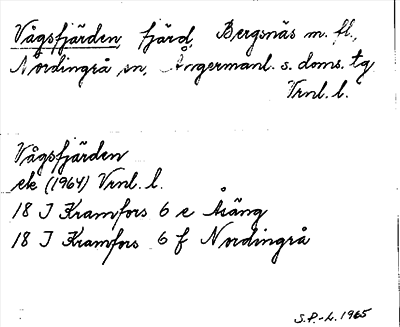 Vågsfjärden, fjärd, Bergsnäs m. fl.,
Nordingrå sn, Ångermanl. s. doms. tg
Vrnl. l.
Vågsfjärden
ek (1964) Vrnl. l.
18 I Kramfors 6 e Åsäng
18 I Kramfors 6 f Nordingrå
S.P.-L. 1965